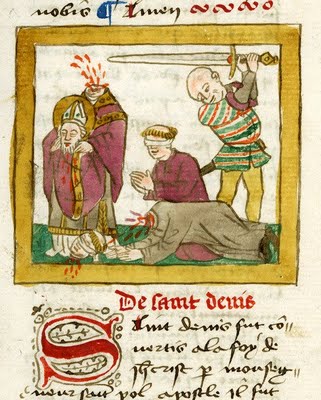 nobis ¶ Amen
De saint denis
Saint denis fut cō-
uertis a la foy de
ihcrist p monseg
neur saint pol apostle il fut